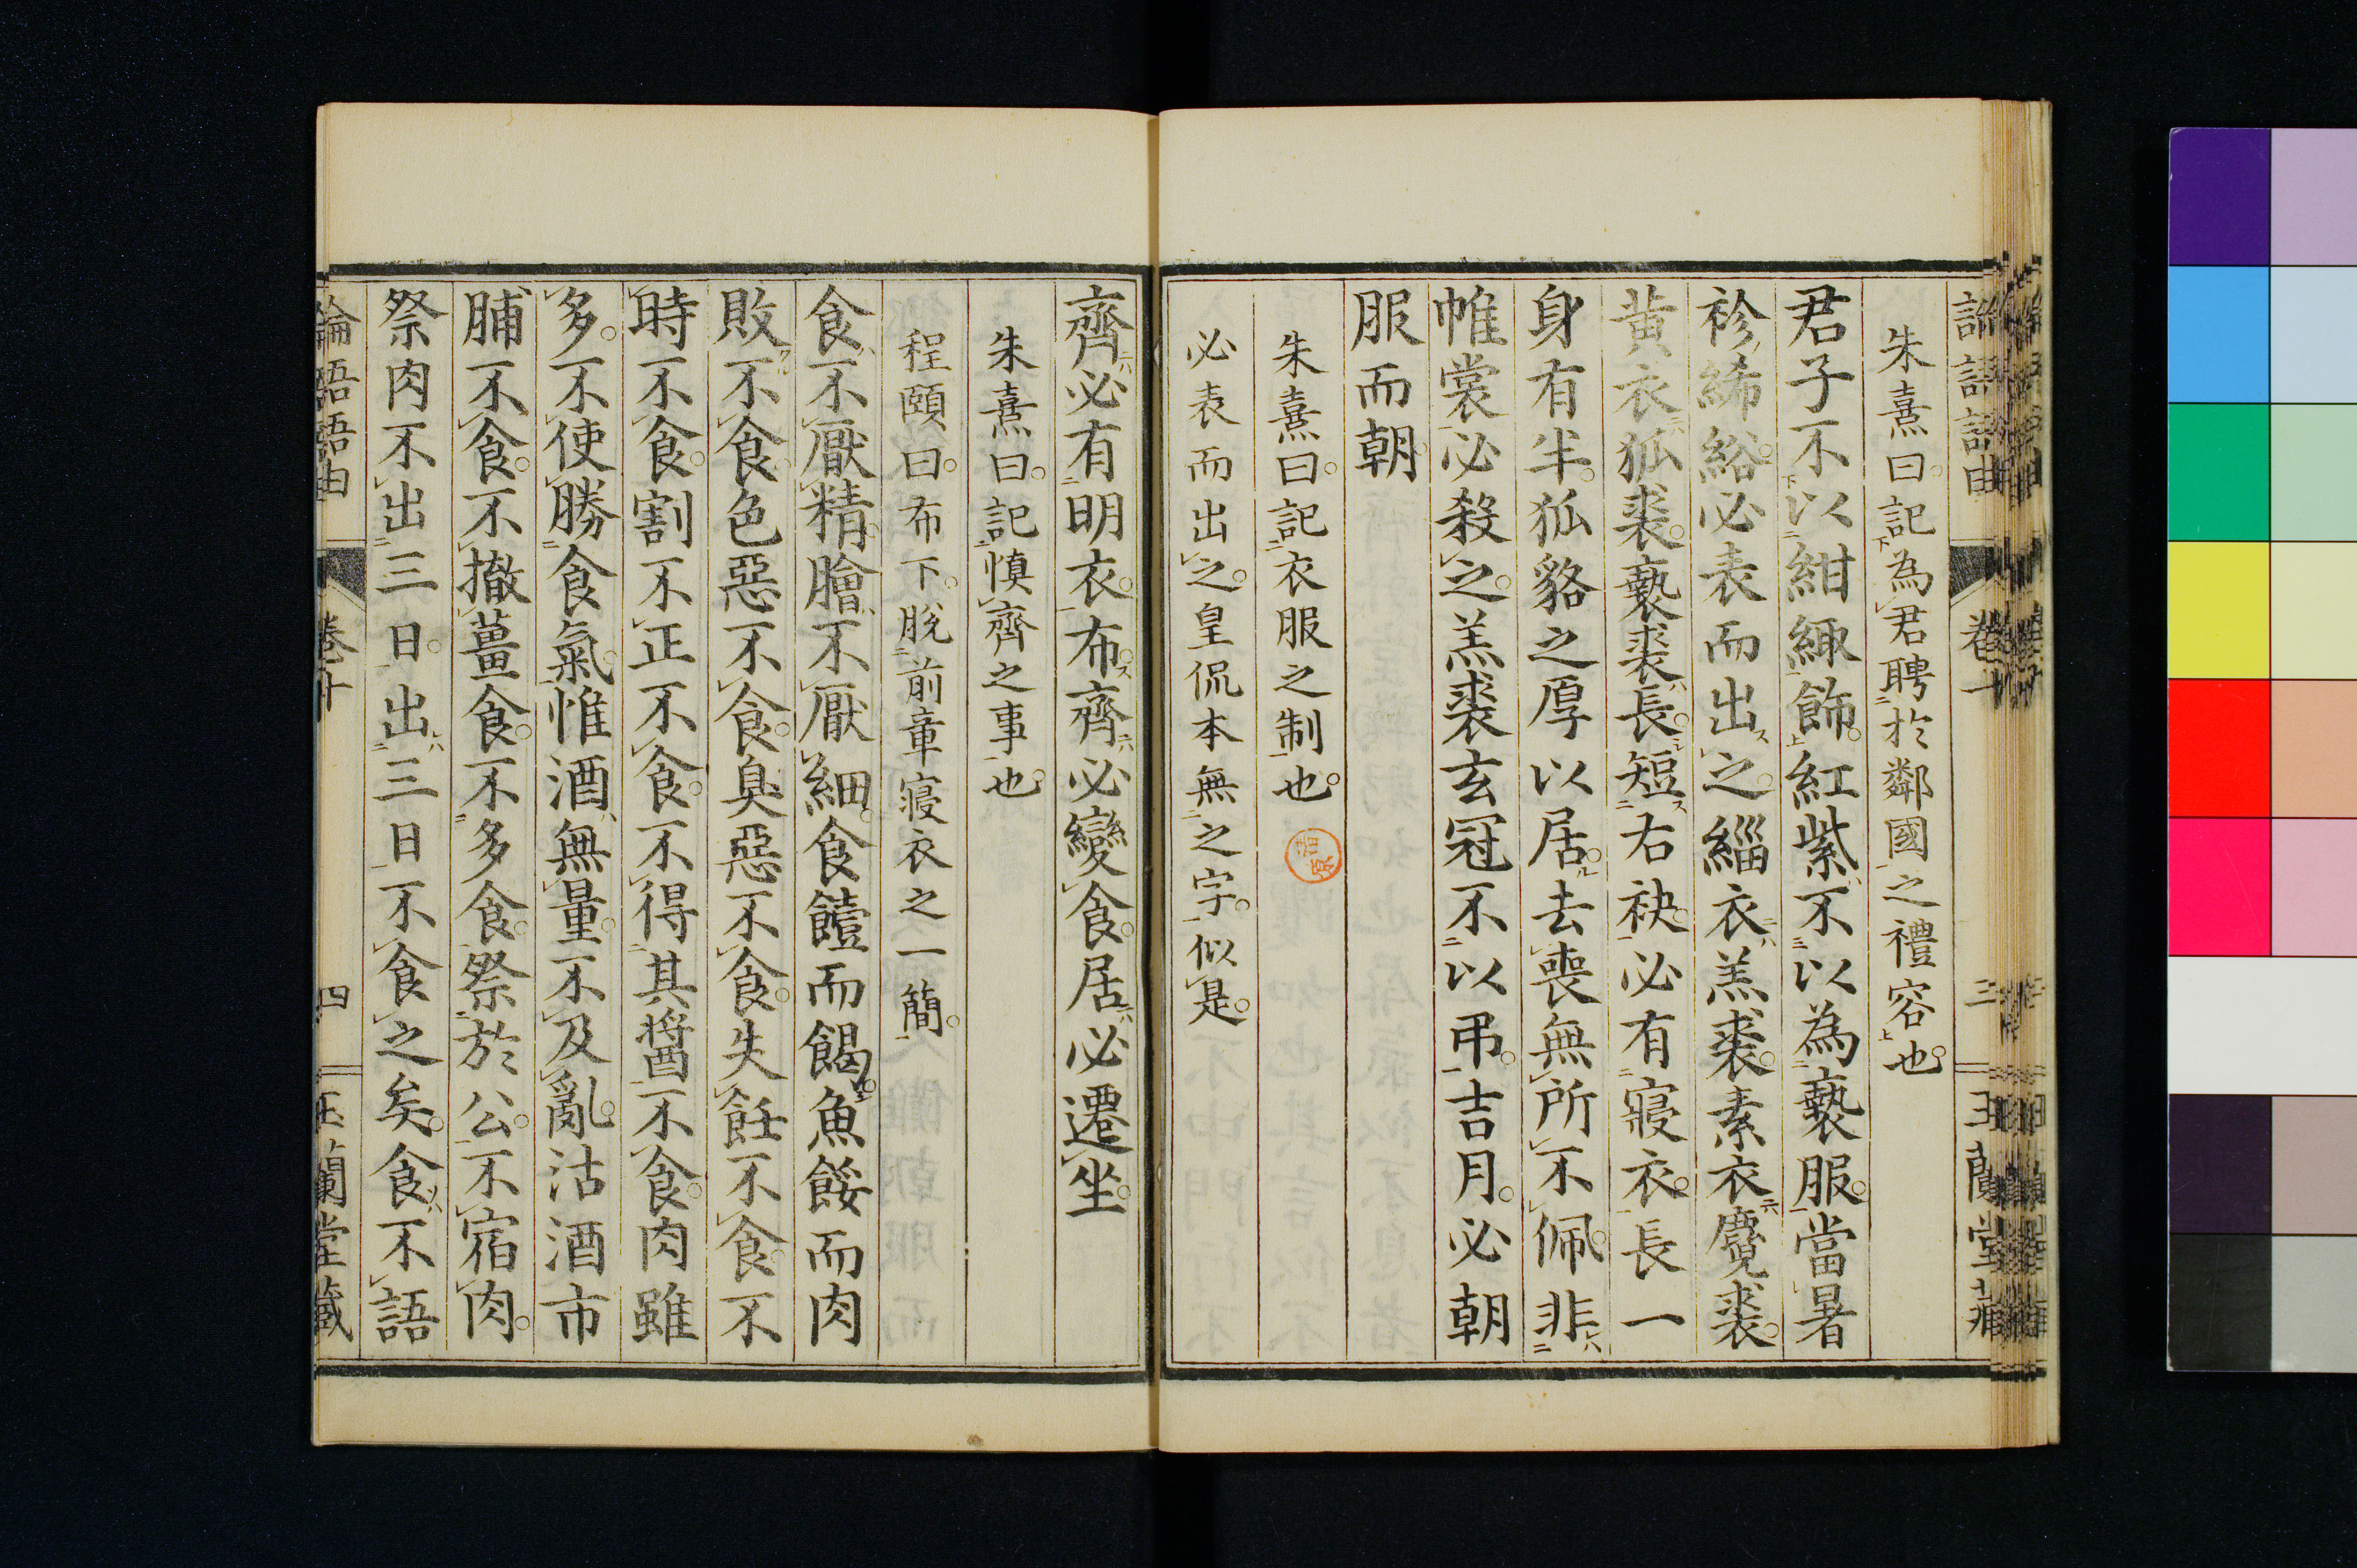 朱熹曰記為君聘於鄰國之禮容也
君子不以紺緅飾紅紫不以為褻服當暑
袗絺綌必表而出之緇衣羔裘素衣麑裘
黃衣狐裘褻裘長短右袂必有寢衣長一
身有半狐貉之厚以居去喪無所不佩非
帷裳必殺之羔裘玄冠不以弔吉月必朝
服而朝
朱熹曰記衣服之制也
必表而出之皇侃本無之字似是
齊必有明衣布齊必變食居必遷坐
朱熹曰記慎齊之事也
程頤曰布下脫前章寢衣之一簡
食不厭精膾不厭細食饐而餲魚餒而肉
敗不食色惡不食臭惡不食失飪不食不
時不食割不正不食不得其醬不食肉雖
多不使勝食氣惟酒無量不及亂沽酒市
脯不食不撤薑食不多食祭於公不宿肉
祭肉不出三日出三日不食之矣食不語
論語語由 卷十 四 玉蘭堂藏